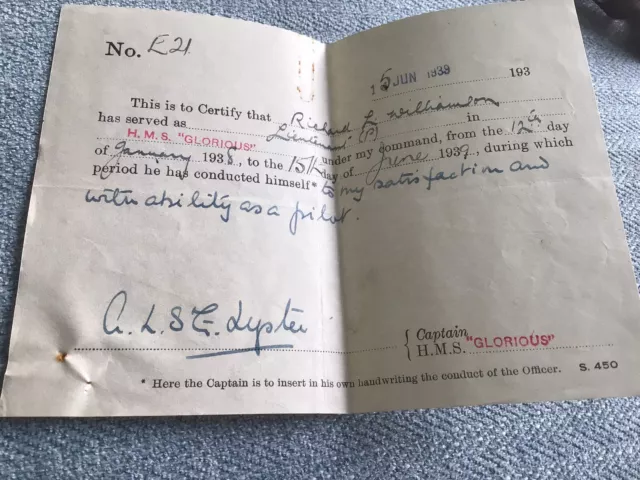 No. E21
15 JUN 1939 193
This is to Certify that Richard L Williamson
has served as Lieutenant (P) in
H.M.S. "GLORIOUS" under my command, from the 12th day
of January 1938, to the 15th day of June 1939, during which
period he has conducted himself* to my satisfaction and
with ability as a pilot.
A. L. St. G. Lyster
Captain
H.M.S. "GLORIOUS"
* Here the Captain is to insert in his own handwriting the conduct of the Officer. S. 450